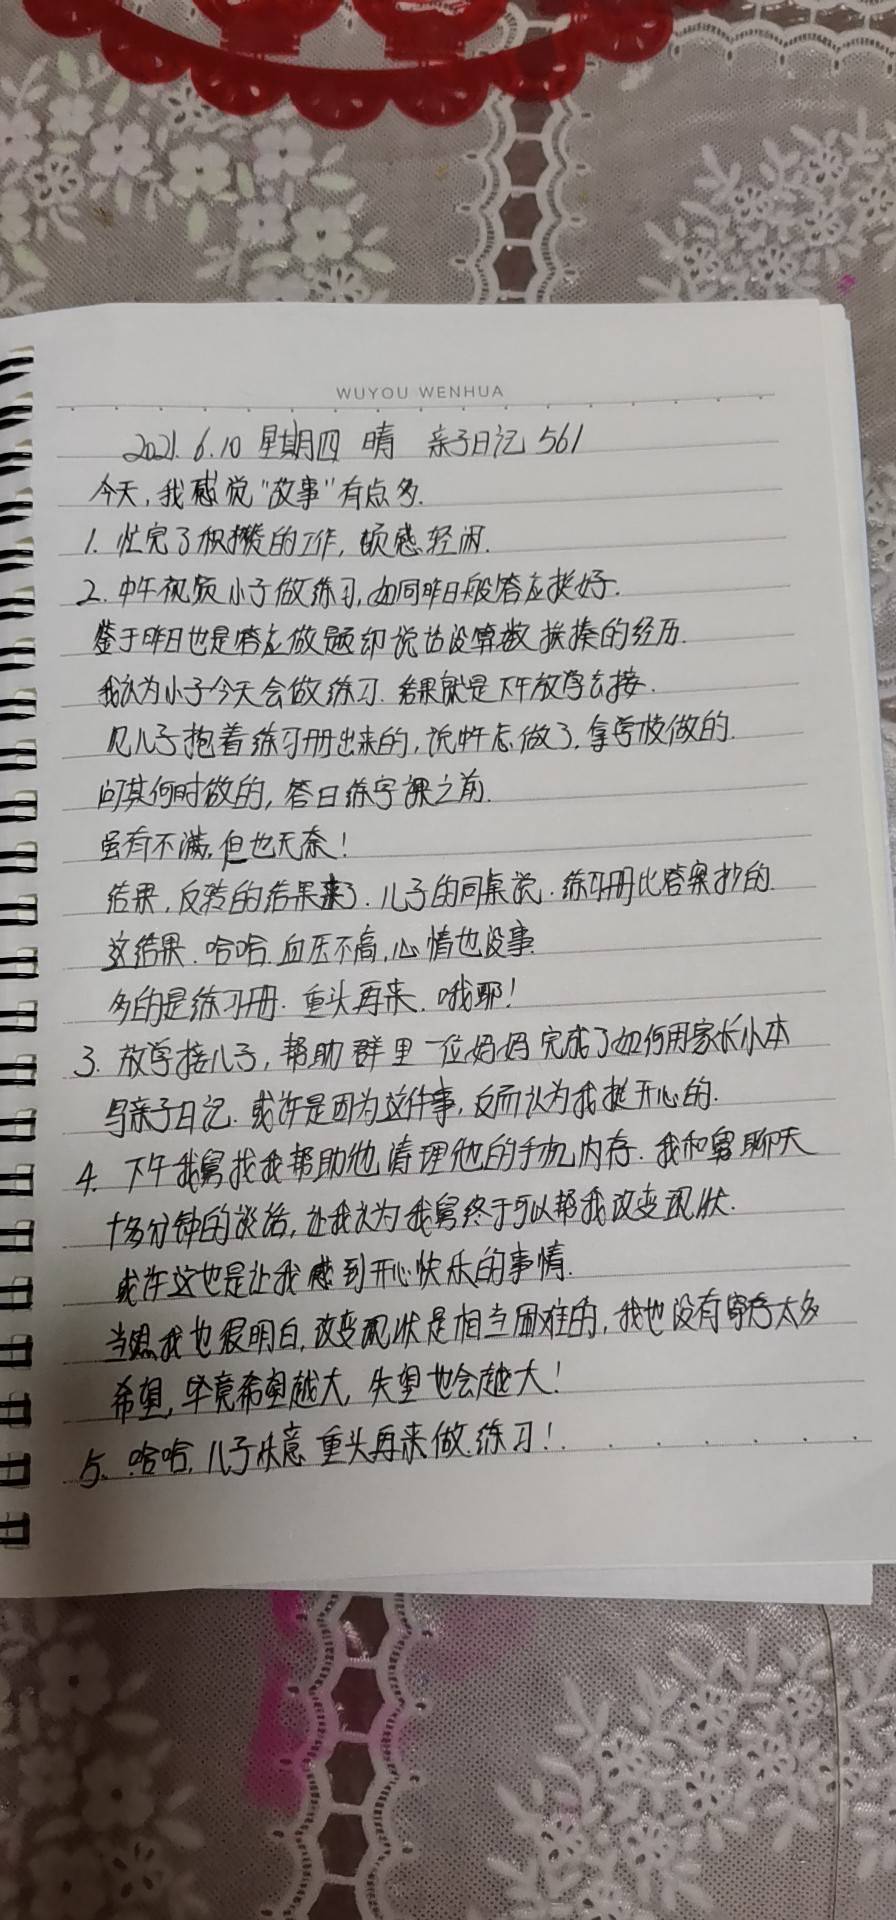 WUYOU WENHUA
2021.6.10 星期四 晴 亲子日记561
今天,我感觉"故事"有点多.
1. 忙完了积攒的工作,顿感轻闲.
2. 中午视频小子做练习,如同昨日般答应挺好.
鉴于昨日也是答应做题却说话没算数挨揍的经历.
我认为小子今天会做练习.结果就是下午放学去接.
见儿子抱着练习册出来的,说中午忘做了,拿学校做的.
问其何时做的,答曰练字课之前.
虽有不满,但也无奈!
结果,反转的结果来了.儿子的同桌说.练习册比答案抄的.
这结果.哈哈.血压不高,心情也没事.
多的是练习册.重头再来.哦耶!
3. 放学接儿子,帮助群里一位妈妈完成了如何用家长小本
写亲子日记.或许是因为这件事,反而认为我挺开心的.
4. 下午我舅找我帮助他清理他的手机内存.我和舅聊天
十多分钟的谈话,让我认为我舅终于可以帮我改变现状.
或许这也是让我感到开心快乐的事情.
当然我也很明白,改变现状是相当困难的,我也没有寄存太多
希望,毕竟希望越大,失望也会越大!
5. 哈哈,儿子决意重头再来做练习!